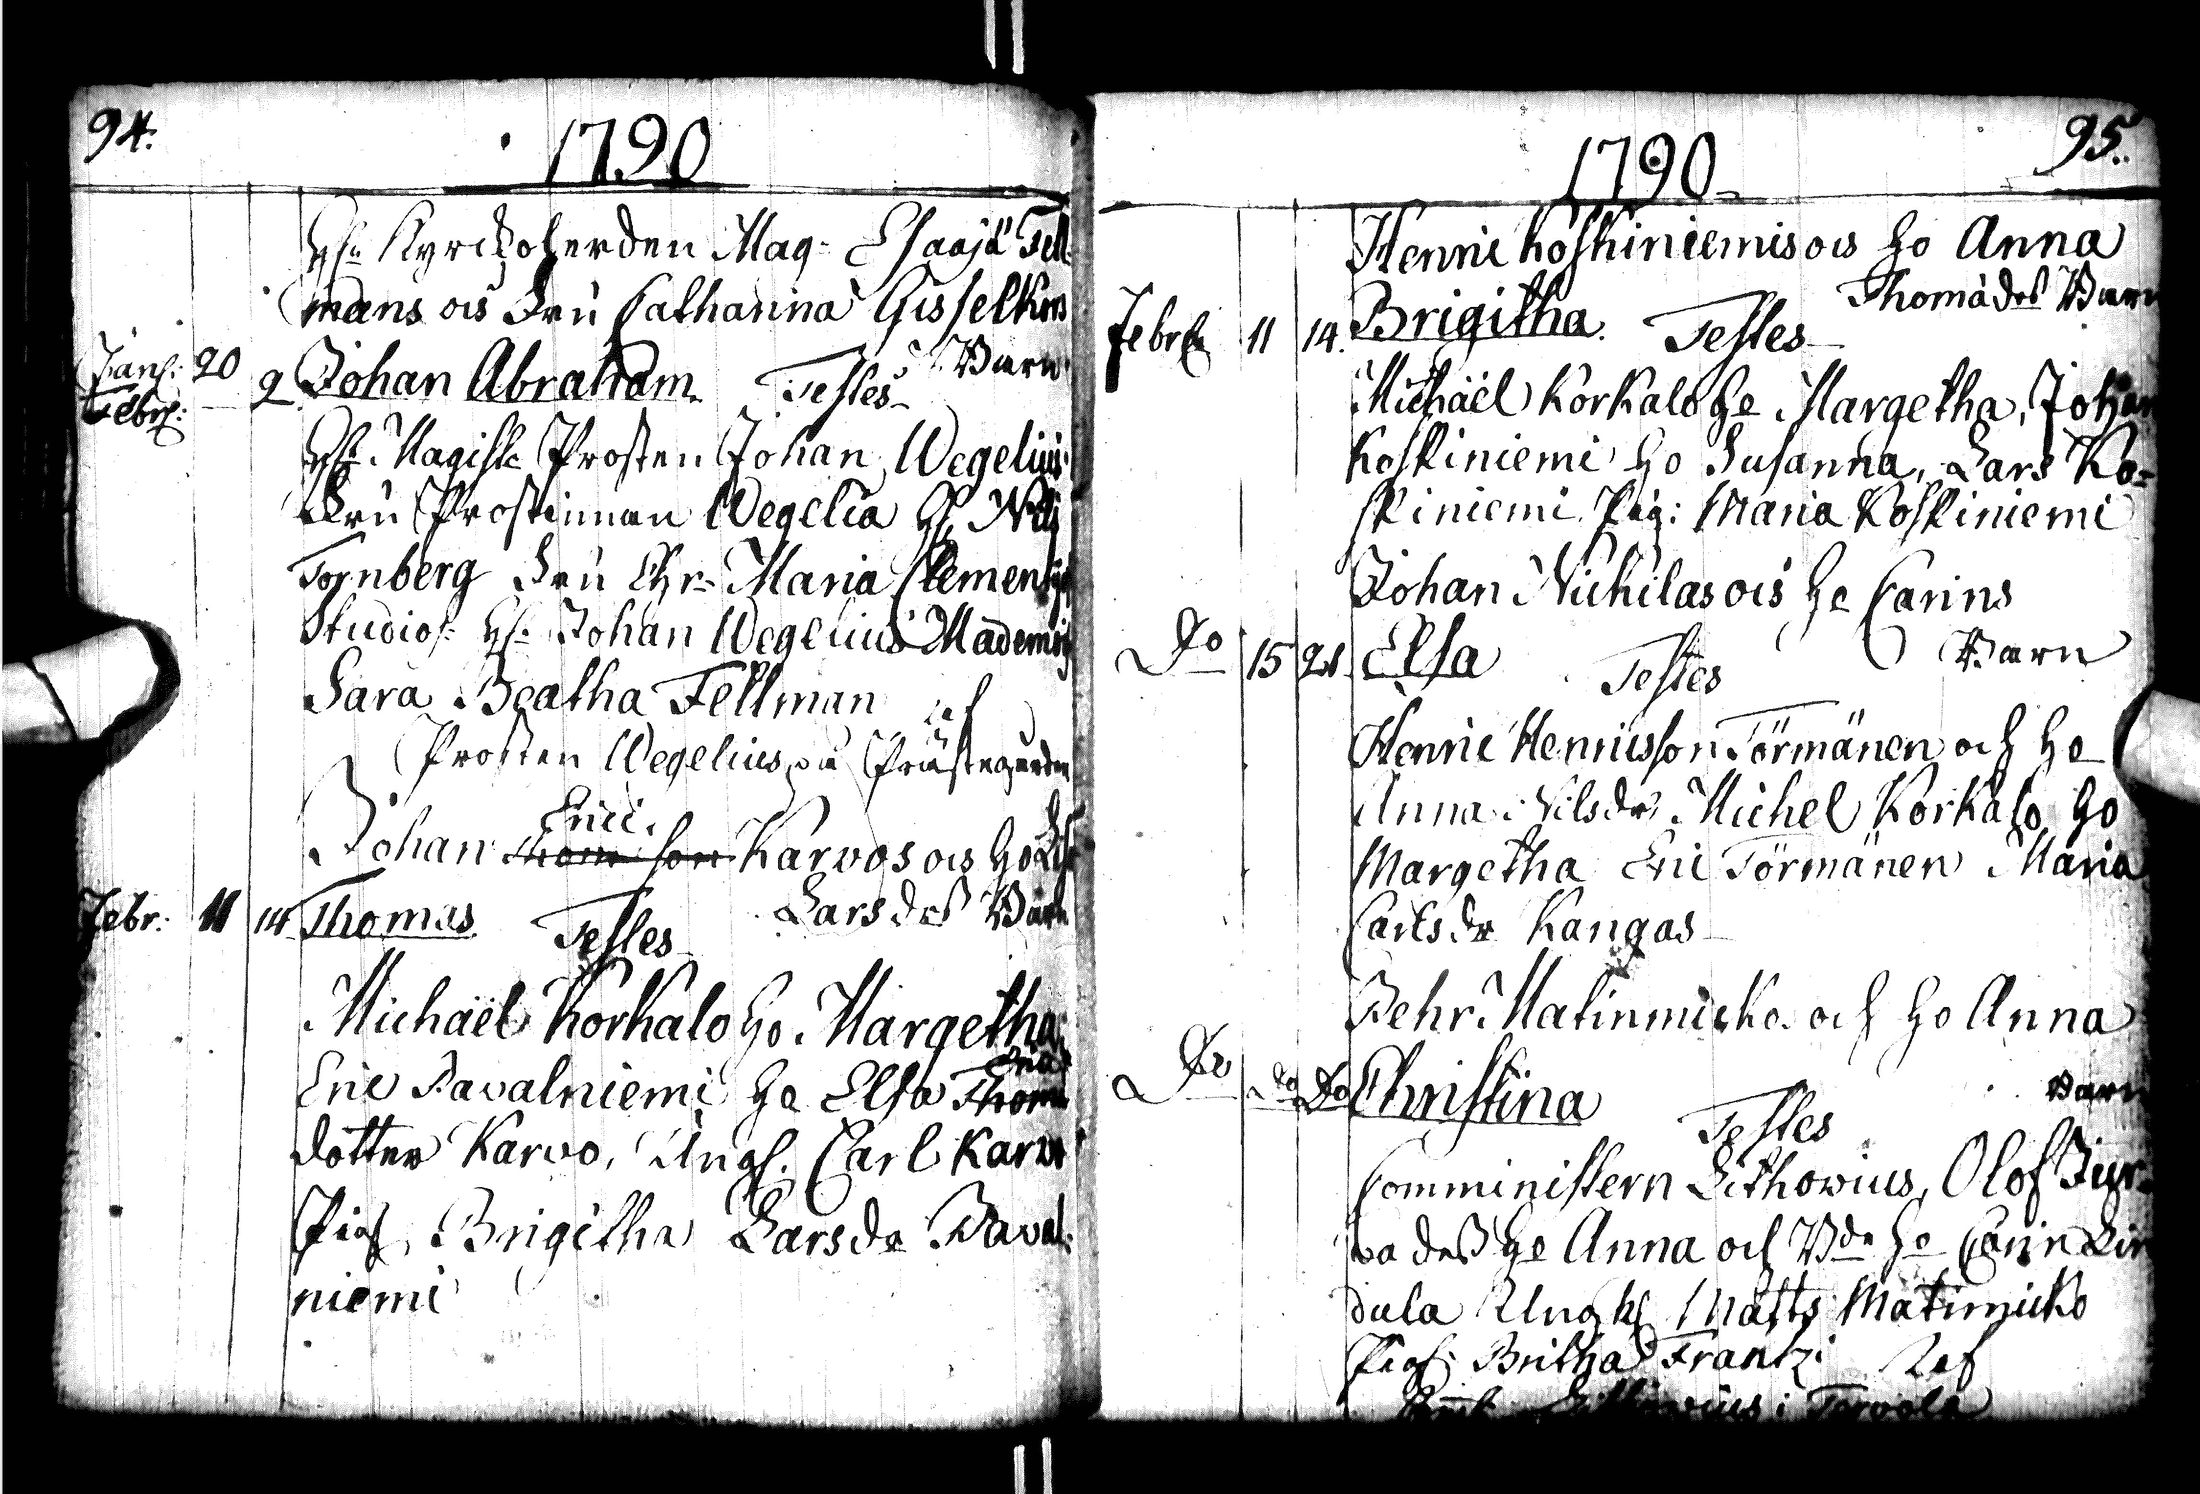 94.
1790
H:r Kyrckoherden Mag: Esaajæ Fell-
mans ocs Fru Catharina Gisselkors
Barn
Janr: 20
Febr: 2 Johan Abraham. Testes
H:r Magist: Prosten Johan Wegelius
Fru Prostinnan Wegelia H:r Nils
Tornberg Fru Chr: Maria Clementsj
Studios: H:r Johan Wegelius Mademois
Sara Beatha Fellman
Prosten Wegelius på Prästegården
Erici
Johan Thom son Karvos ocs Ho
Lars des Barn
Febr: 11 14. Thomas Testes
Michaël Korkalo Ho Margetha
Eric Pavalniemi Ho Elsa Thom
dotter Karvo, Ungk. Carl Karvo
Pig. Brigitha Larsdr Paval-
niemi
95.
1790
Henric Koskiniemis ocs Ho Anna
Thomædes Barn
Febr: 11 14. Brigitha. Testes
Michaël Korkalo Ho Margetha, Johan
Koskiniemi Ho Susanna, Lars Ko-
skiniemi Pig: Maria Koskiniemi
Johan Nickilas ocs Ho Carins
Barn
Do 15 21 Elsa Testes
Henric Henricsson Törmänen och Ho
Anna Nilsdr Michel Korkalo Ho
Margetha Eric Törmänen Maria
Carlsdr Kangas
Pehr Matinmicko och Ho Anna
Barn
Do do Do Christina Testes
Comministern Lithovius, Olof Jur-
va dess Ho Anna och Bdn Ho Carin Lin
dula Ungk Matts Matinmicko
Pig: Britha Frantzi
Lithovius i Torvola